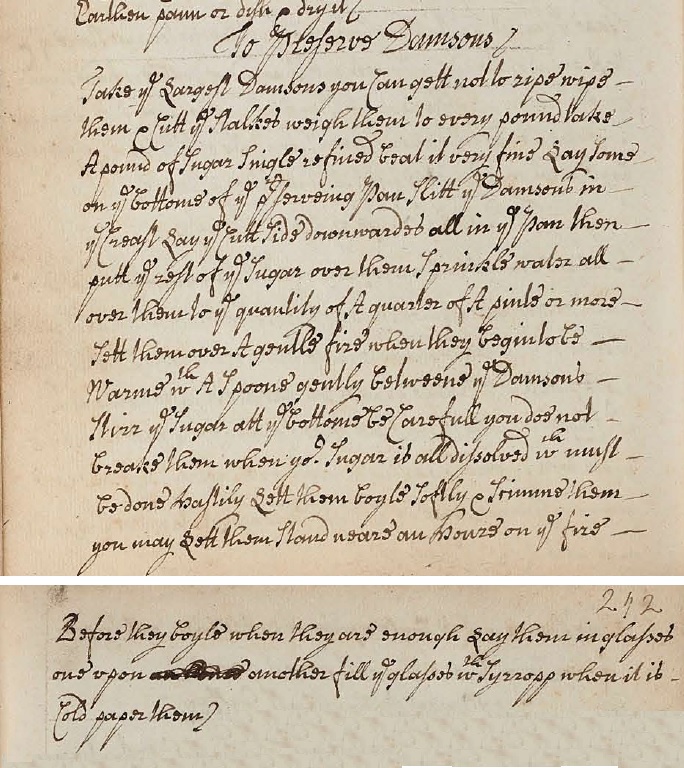 Earthen pann or dish & dry it
To Preserve Damsons
Take ye Largest Damsons you Can gett not to ripe wipe
them & Cutt ye Stalkes weigh them to every pound take
A pound of Sugar Single refined beat it very fine Lay Some
on ye bottome of ye pserveing Pan Slitt ye Damsons in
ye Creast Lay ye Cutt Side downwardes all in ye Pan then
putt ye rest of ye Sugar over them Sprinkle water all
over them to ye quantity of A quarter of A pinte or more
Sett them over A gentle fire when they begin to be
Warme wth A Spoone gently betweene ye Damsons
Stirr ye Sugar att ye bottome be Carefull you doe not
breake them when yor Sugar is all dissolved wch must
be done hastily Lett them boyle Softly & Scimme them
you may Lett them Stand neare an houre on ye fire
242
Before they boyle when they are enough Lay them in glasses
one upon another fill ye glasses wth Syrropp when it is
Cold paper them